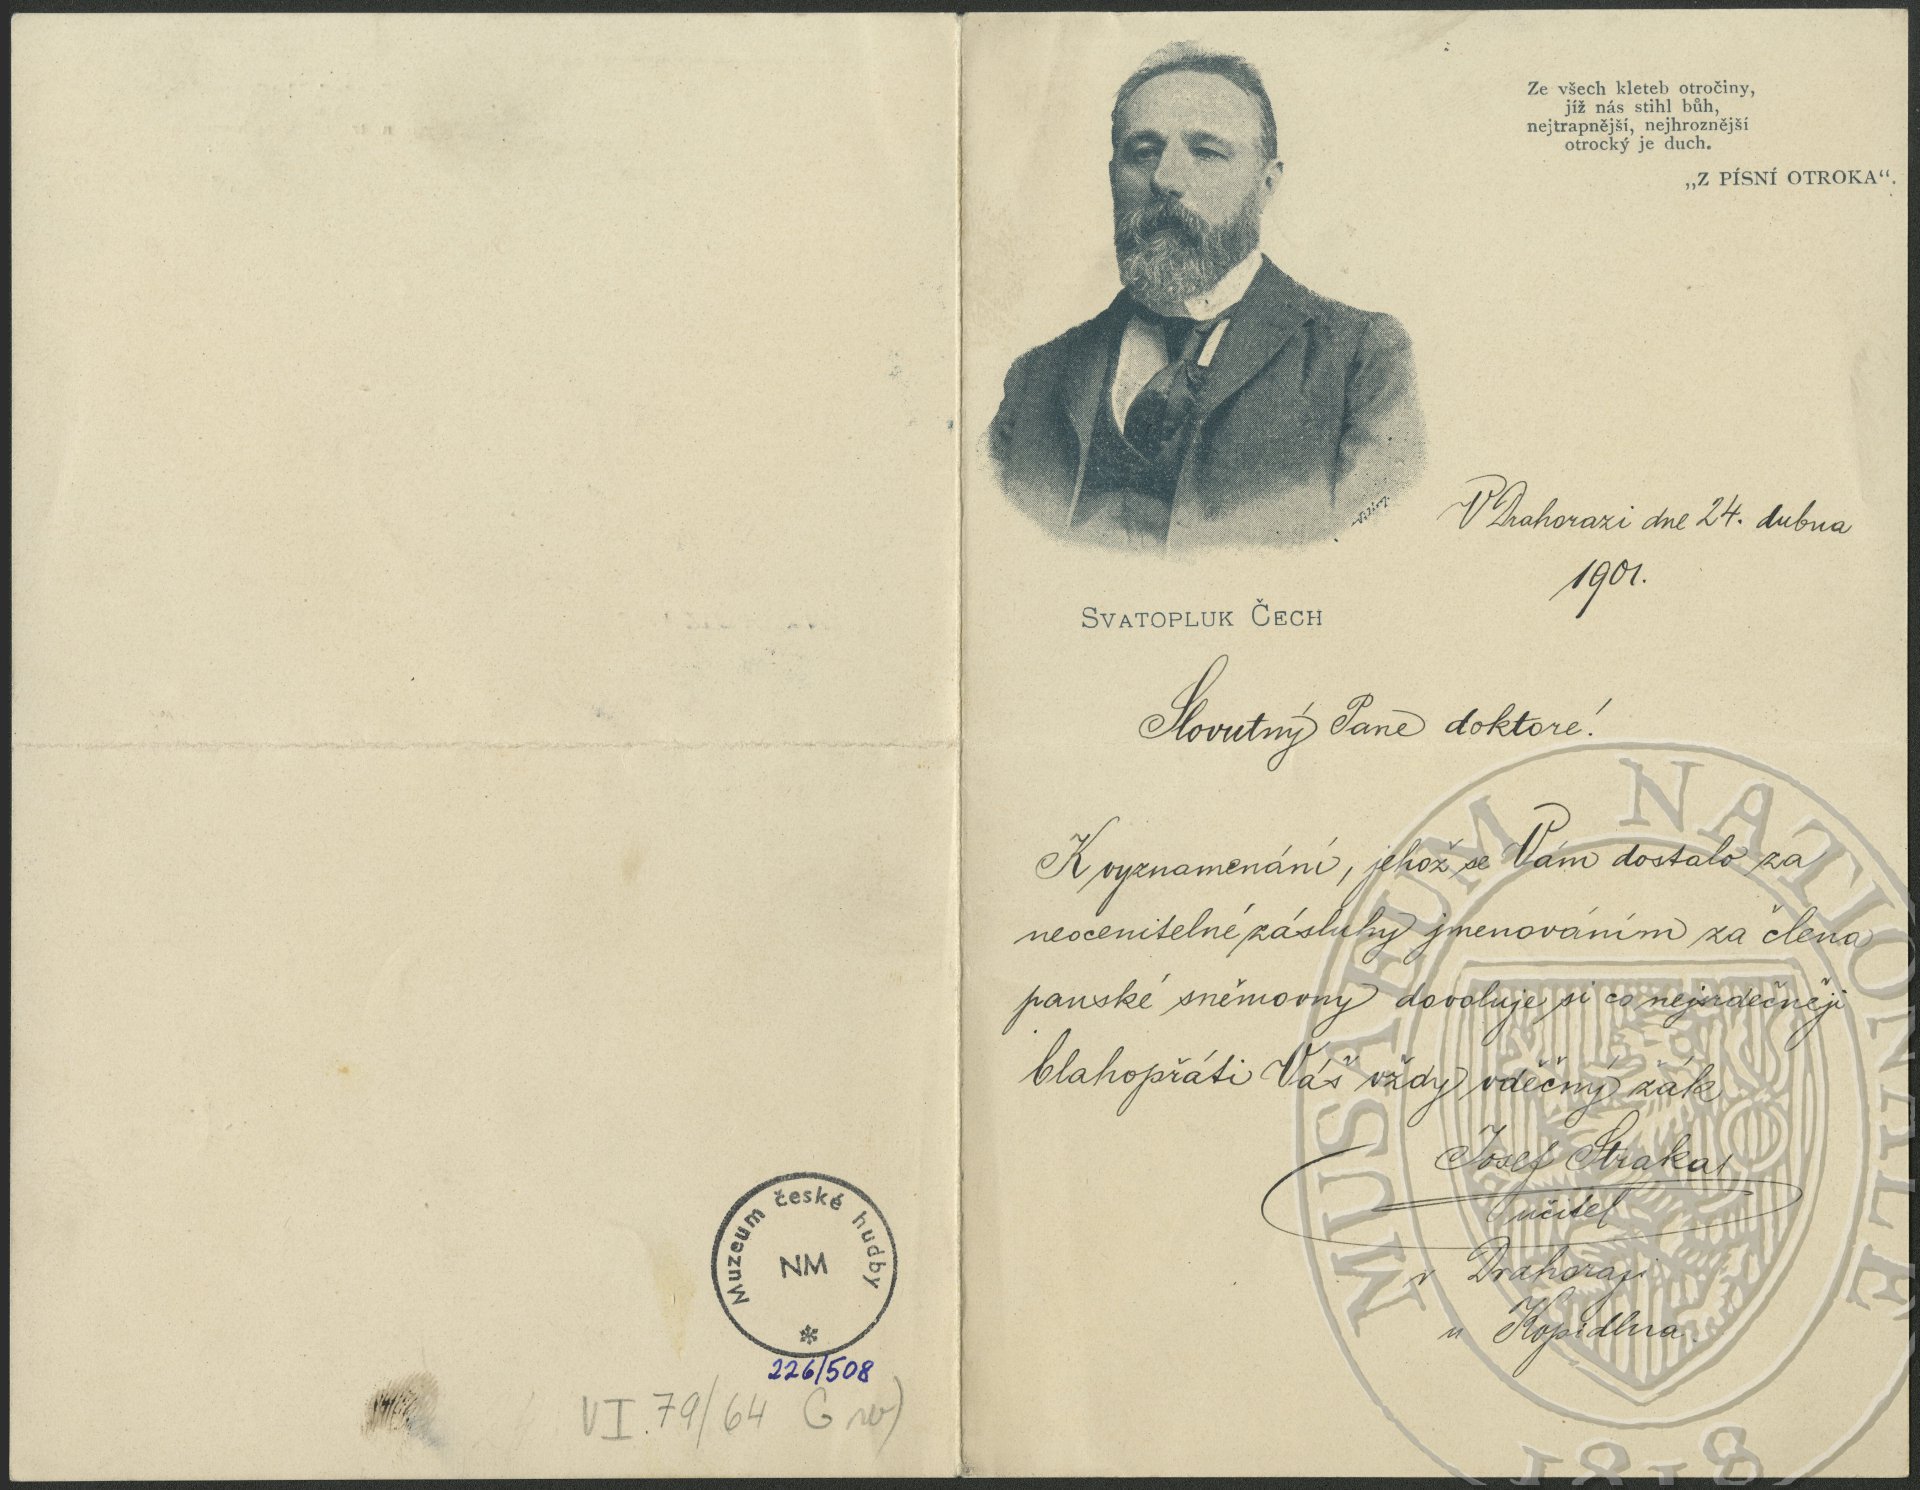 Muzeum české hudby
NM
226/508
VI.79/64
Ze všech kleteb otročiny,
jíž nás stihl bůh,
nejtrapnější, nejhroznější
otrocký je duch.
„Z PÍSNÍ OTROKA“.
V Drahorazi dne 24. dubna
1901.
SVATOPLUK ČECH
Slovutný Pane doktore!
K vyznamenání, jehož se Vám dostalo za
neocenitelné zásluhy jmenováním za člena
panské sněmovny dovoluje si co nejsrdečněji
blahopřáti Váš vždy vděčný žák
Josef Straka,
učitel
v Drahorazi
u Kopidlna.
MUSAEUM NATIONALE
1818